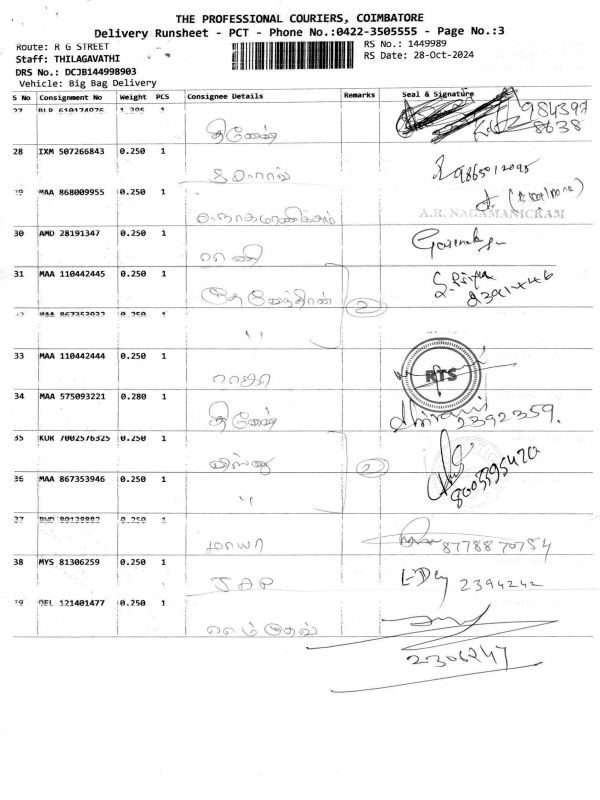 THE PROFESSIONAL COURIERS, COIMBATORE
Delivery Runsheet - PCT - Phone No.:0422-3505555 - Page No.:3
Route: R G STREET
RS No.: 1449989
Staff: THILAGAVATHI
RS Date: 28-Oct-2024
DRS No.: DCJB144998903
Vehicle: Big Bag Delivery
S No Consignment No Weight PCS Consignee Details Remarks Seal & Signature
27 BLR 610174076 1.395 1
தினேஷ்
984397
8638
28 IXM 507266843 0.250 1
9865012095
29 MAA 868009955 0.250 1
A.R. NAGAMANICKAM
30 AMD 28191347 0.250 1
மணி
31 MAA 110442445 0.250 1
2391446
2
32 MAA 867353932 0.250 1
"
33 MAA 110442444 0.250 1
ராஜா
RTS
34 MAA 575093221 0.280 1
தினேஷ்
2392359.
35 KUR 7002576325 0.250 1
விஷ்ணு
2
36 MAA 867353946 0.250 1
"
37 0.250 1
மாயா
87788 70754
38 MYS 81306259 0.250 1
JAP
2394242
39 DEL 121401477 0.250 1
2306247